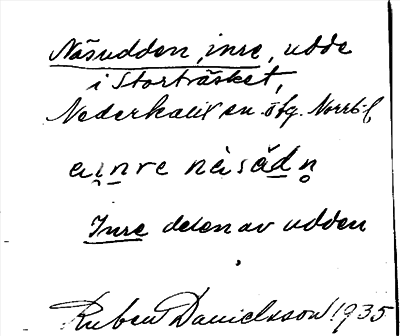 Näsudden, inre, udde
i Storträsket,
Nederkalix sn. öfg. Norrb. l.
ai̯nre nàsădn̥
Inre delen av udden
Ruben Danielsson 1935